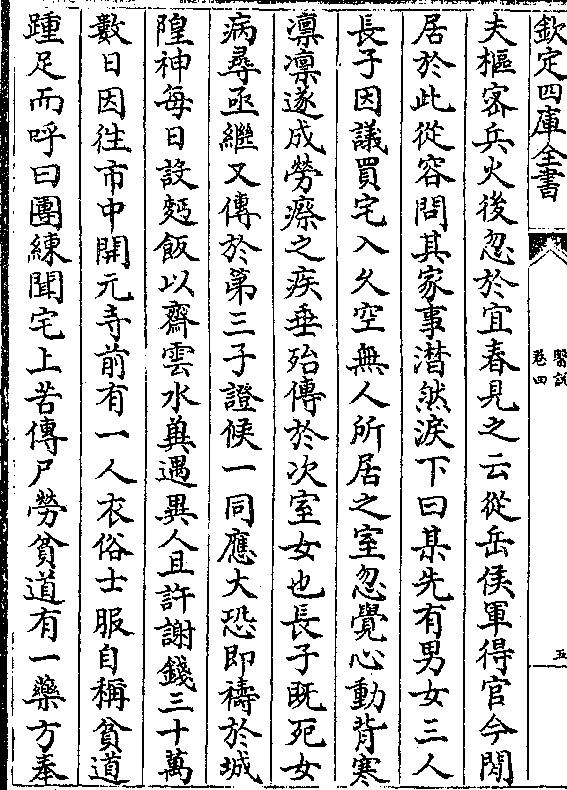 欽定四庫全書
醫説
卷四
五
夫樞宻兵火後忽於宜春見之云從岳侯軍得官今閒
居於此從容問其家事潸然淚下曰某先有男女三人
長子因議買宅入久空無人所居之室忽覺心動背寒
凛凛遂成勞瘵之疾垂殆傳於次室女也長子既死女
病尋亟繼又傳於第三子證候一同應大恐即禱於城
隍神每日設麪飯以齋雲水兾遇異人且許謝錢三十萬
數日因徃市中開元寺前有一人衣俗士服自稱貧道
踵足而呼曰團練聞宅上苦傳尸勞貧道有一藥方奉